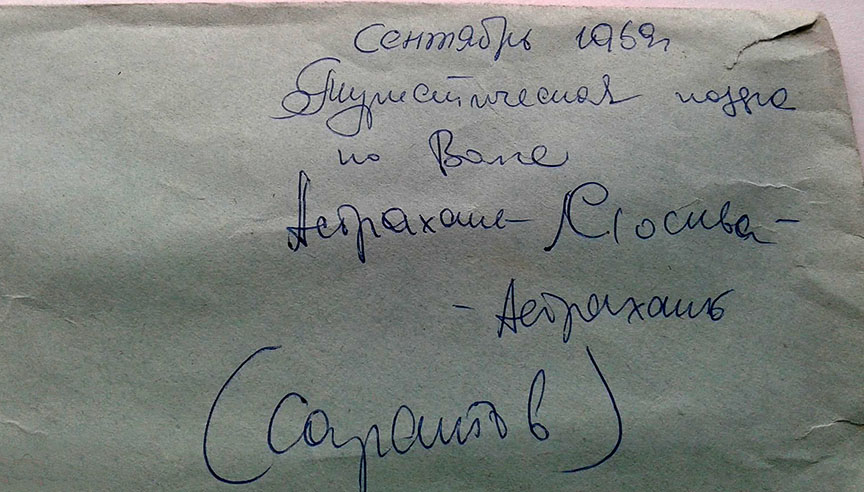 Сентябрь 1969г
Туристическая поездка
по Волге
Астрахань - Москва -
- Астрахань
(Саратов)